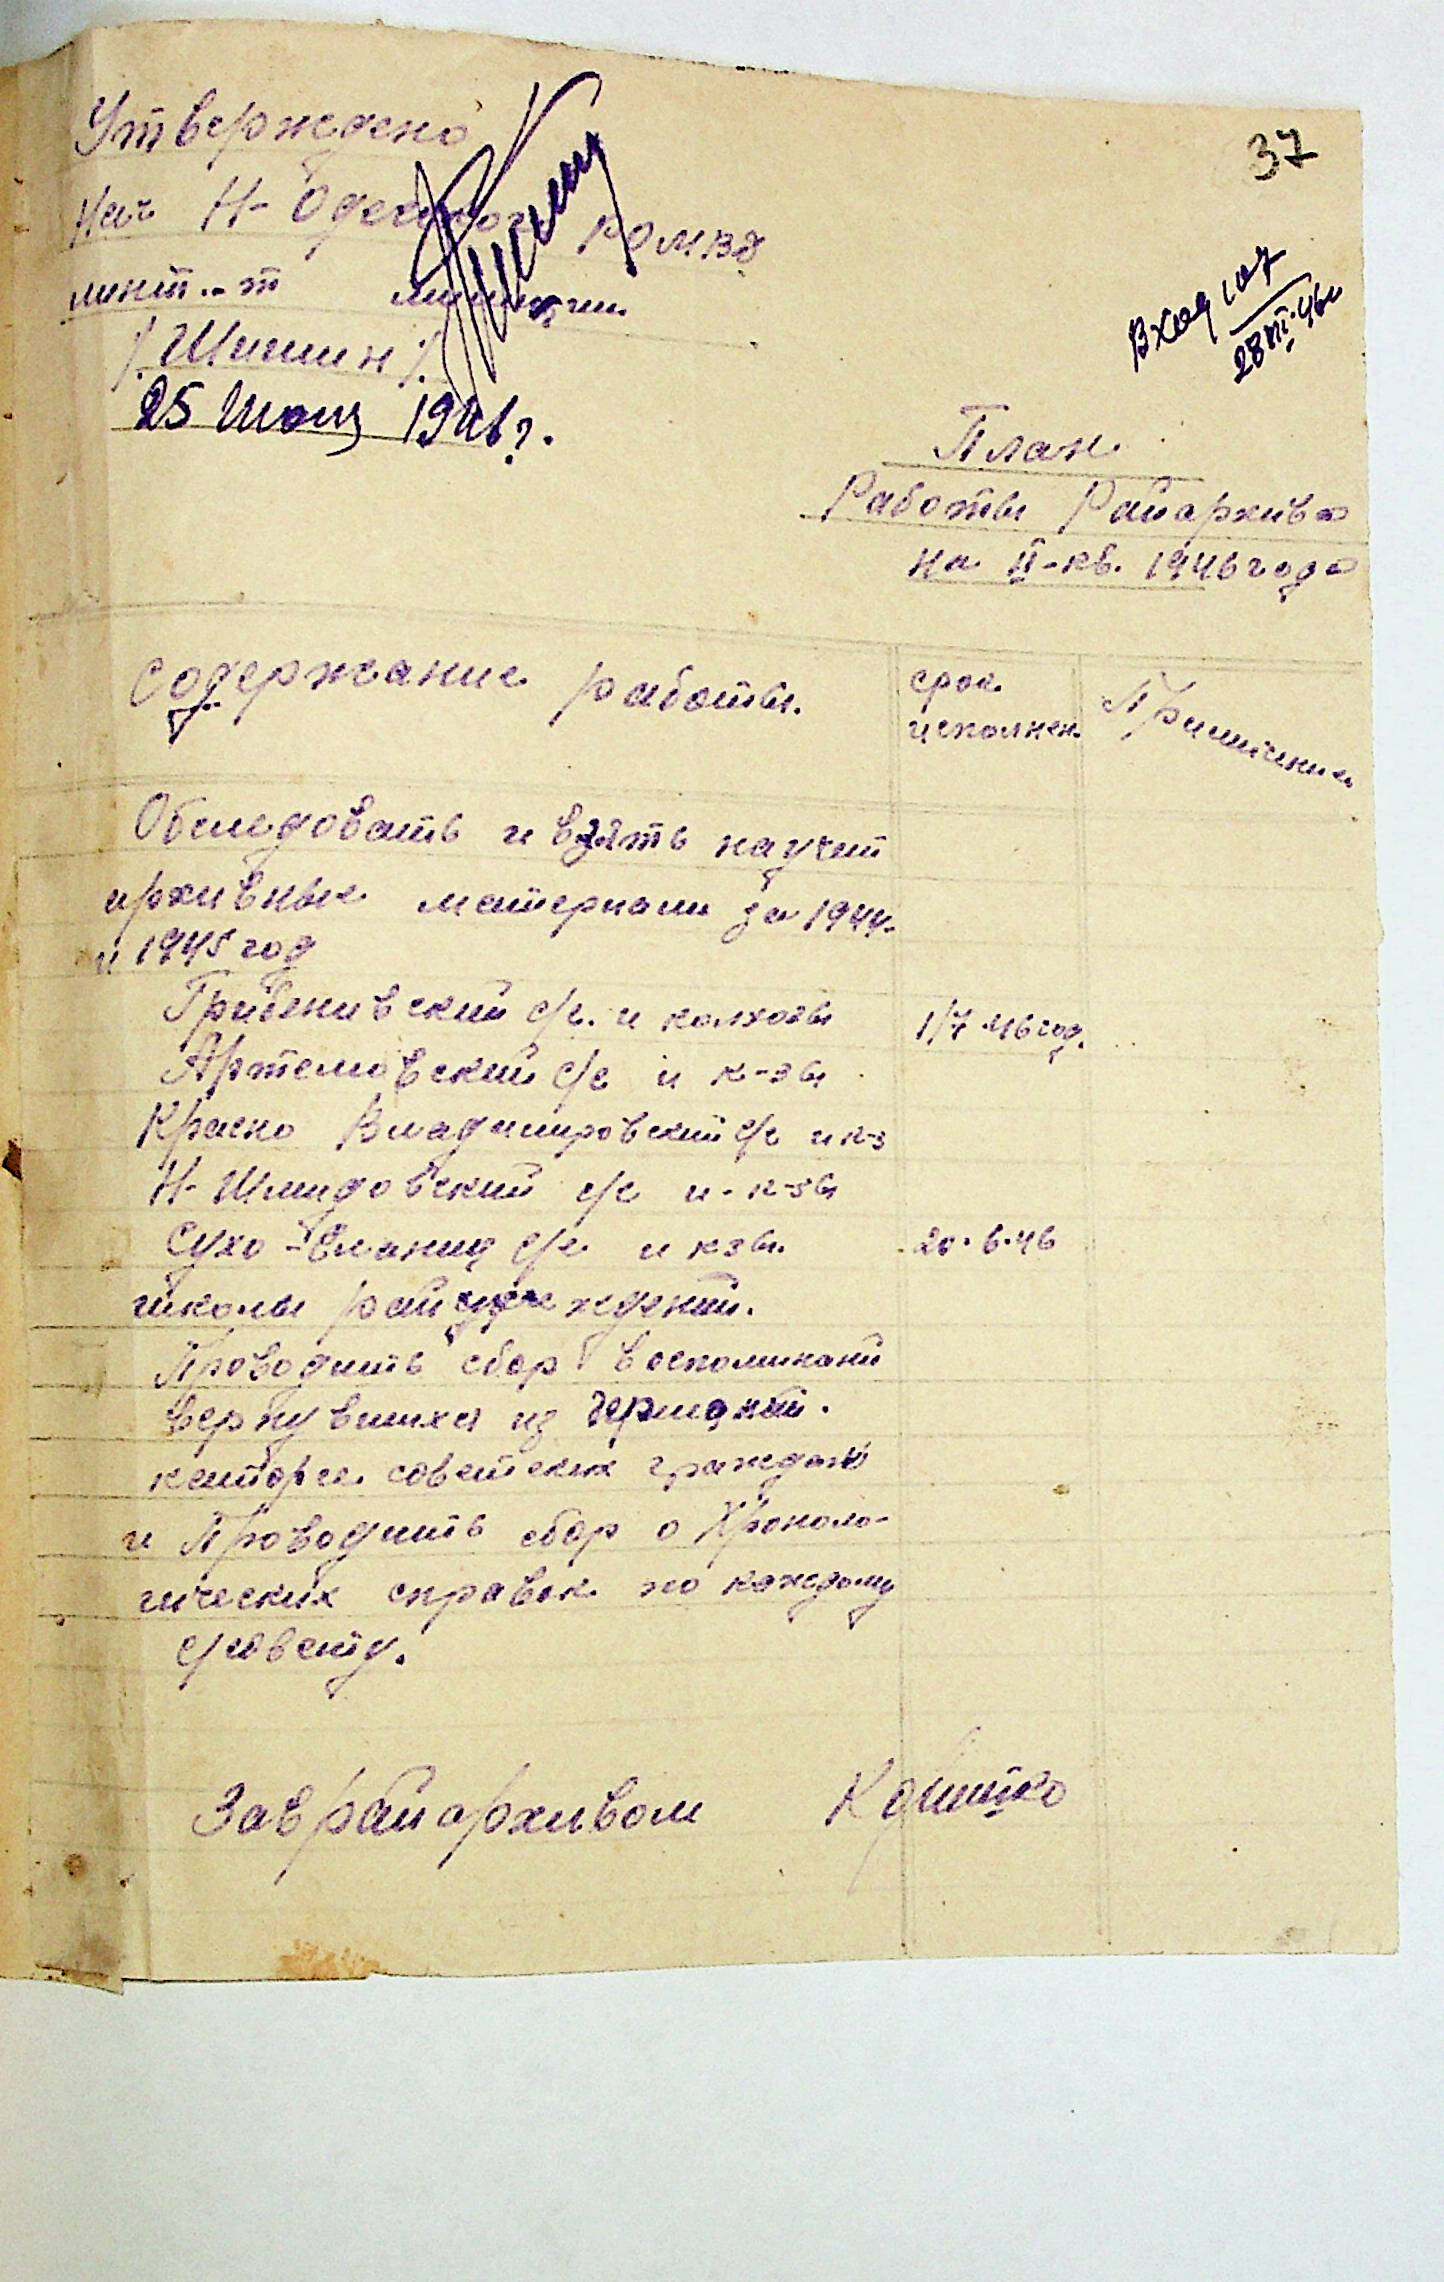 37
Утверждено
Нач Н-Одесского РОМВД
лейт-т милиции
/Шишин/
25 Июля 1946 г.
Вход 107
28 VII 46 г.
План
Работы Райархива
на II-кв. 1946 года
Содержание работы.
срок
исполнен.
Примичание
Обследовать и взять научет
архивные материалы за 1944-
и 1945 год
с/с. и колхозы
1/7 46 год.
Артемовский с/с и к-зы
Красно Владимировский с/с и к-з
Н-Шмидовский с/с и-к-зы
Сухо-Еланец с/с и кзы.
20.6.46
школы райучреждений.
Проводить сбор воспоминани
вернувшихся из Германий.
каторги советских граждан
и Проводить сбор о Хроноло-
гических справок по каждому
с/совету.
Заврайархивом